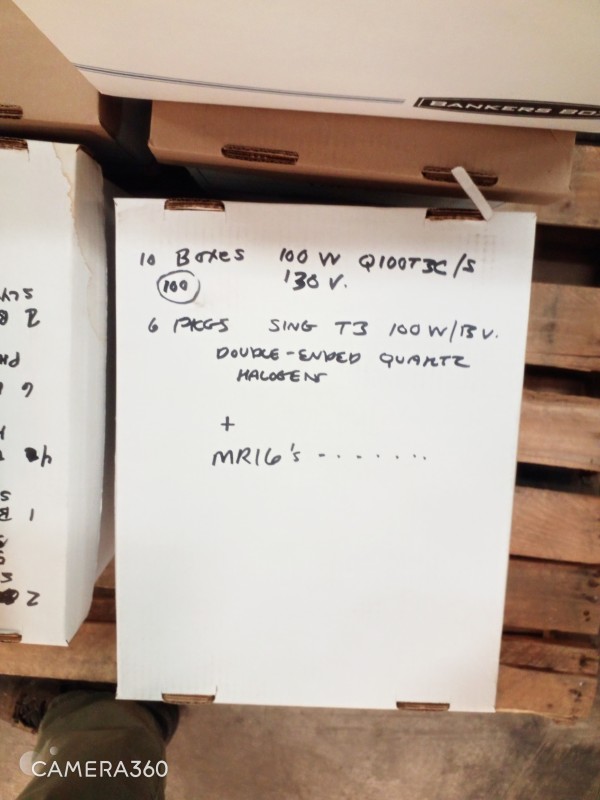 BANKERS BO
10 BOXES 100 W Q100T3C/S
100 130 V.
6 PKGS SING T3 100W/13V.
DOUBLE-ENDED QUARTZ
HALOGENS
+
MR16's - . . . . . .
CAMERA360